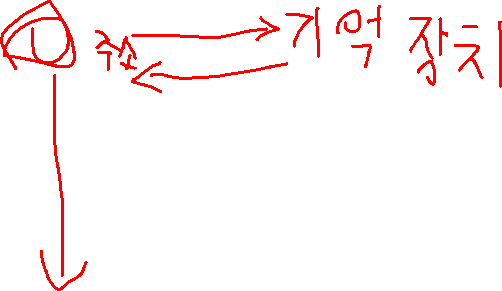 주소 기억 장치